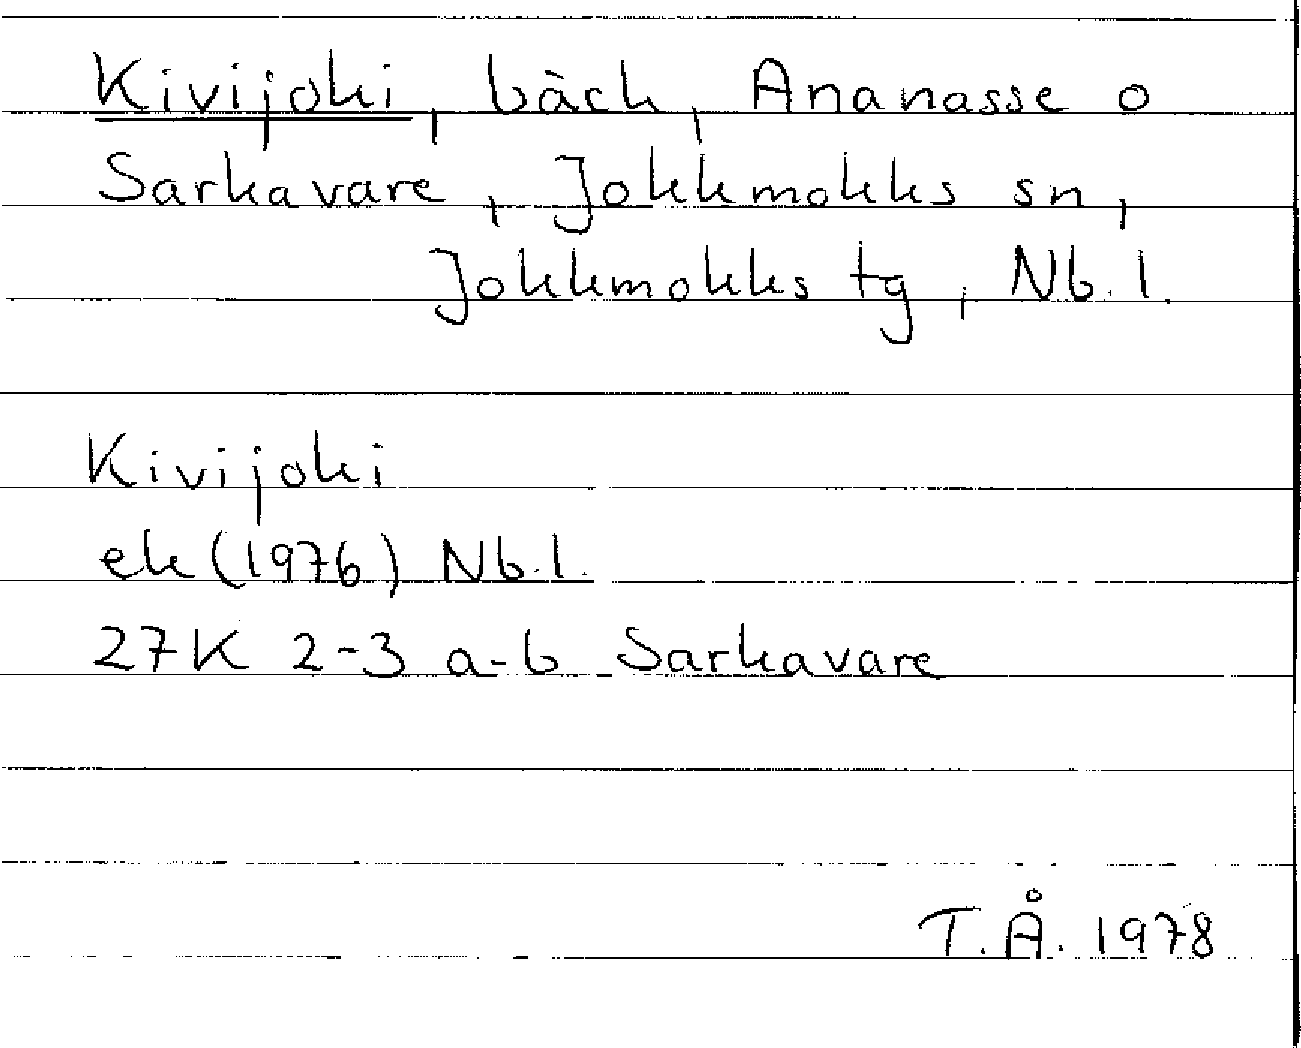 Kivijoki, bäck, Ananasse o
Sarkavare, Jokkmokks sn,
Jokkmokks tg, Nb.l.
Kivijoki
ek (1976) Nb.l.
27K 2-3 a-b Sarkavare
T.Å. 1978